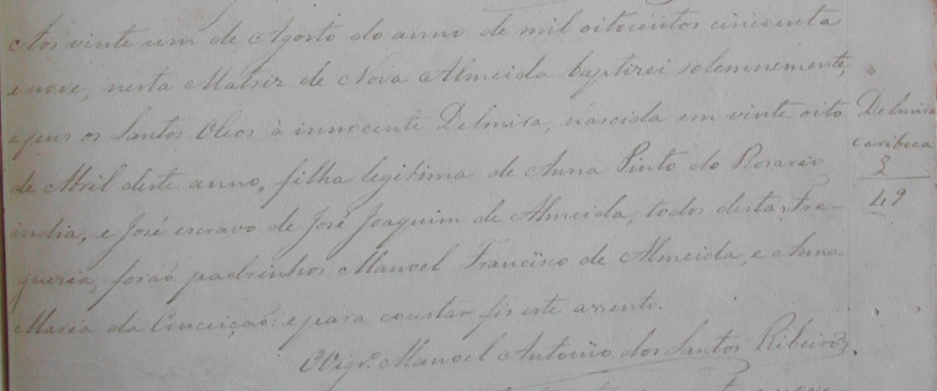 Aos vinte um de Agosto do anno de mil oitocentos cincoenta
e nove, nesta Matriz de Nova Almeida baptizei solemnemente,
e pus os Santos Oleos à innocente Delmira, nascida em vinte oito
de Abril deste anno, filha legitima de Anna Pinto do Rosario
india, e José escravo de José Joaquim de Almeida, todos desta Fre-
guezia, forão padrinhos Manoel Francisco de Almeida, e Anna
Maria da Conceição: e para constar fis este assento.
O Vigr.º Manoel Antonio dos Santos Ribeiro.
Delmira
cariboca
49